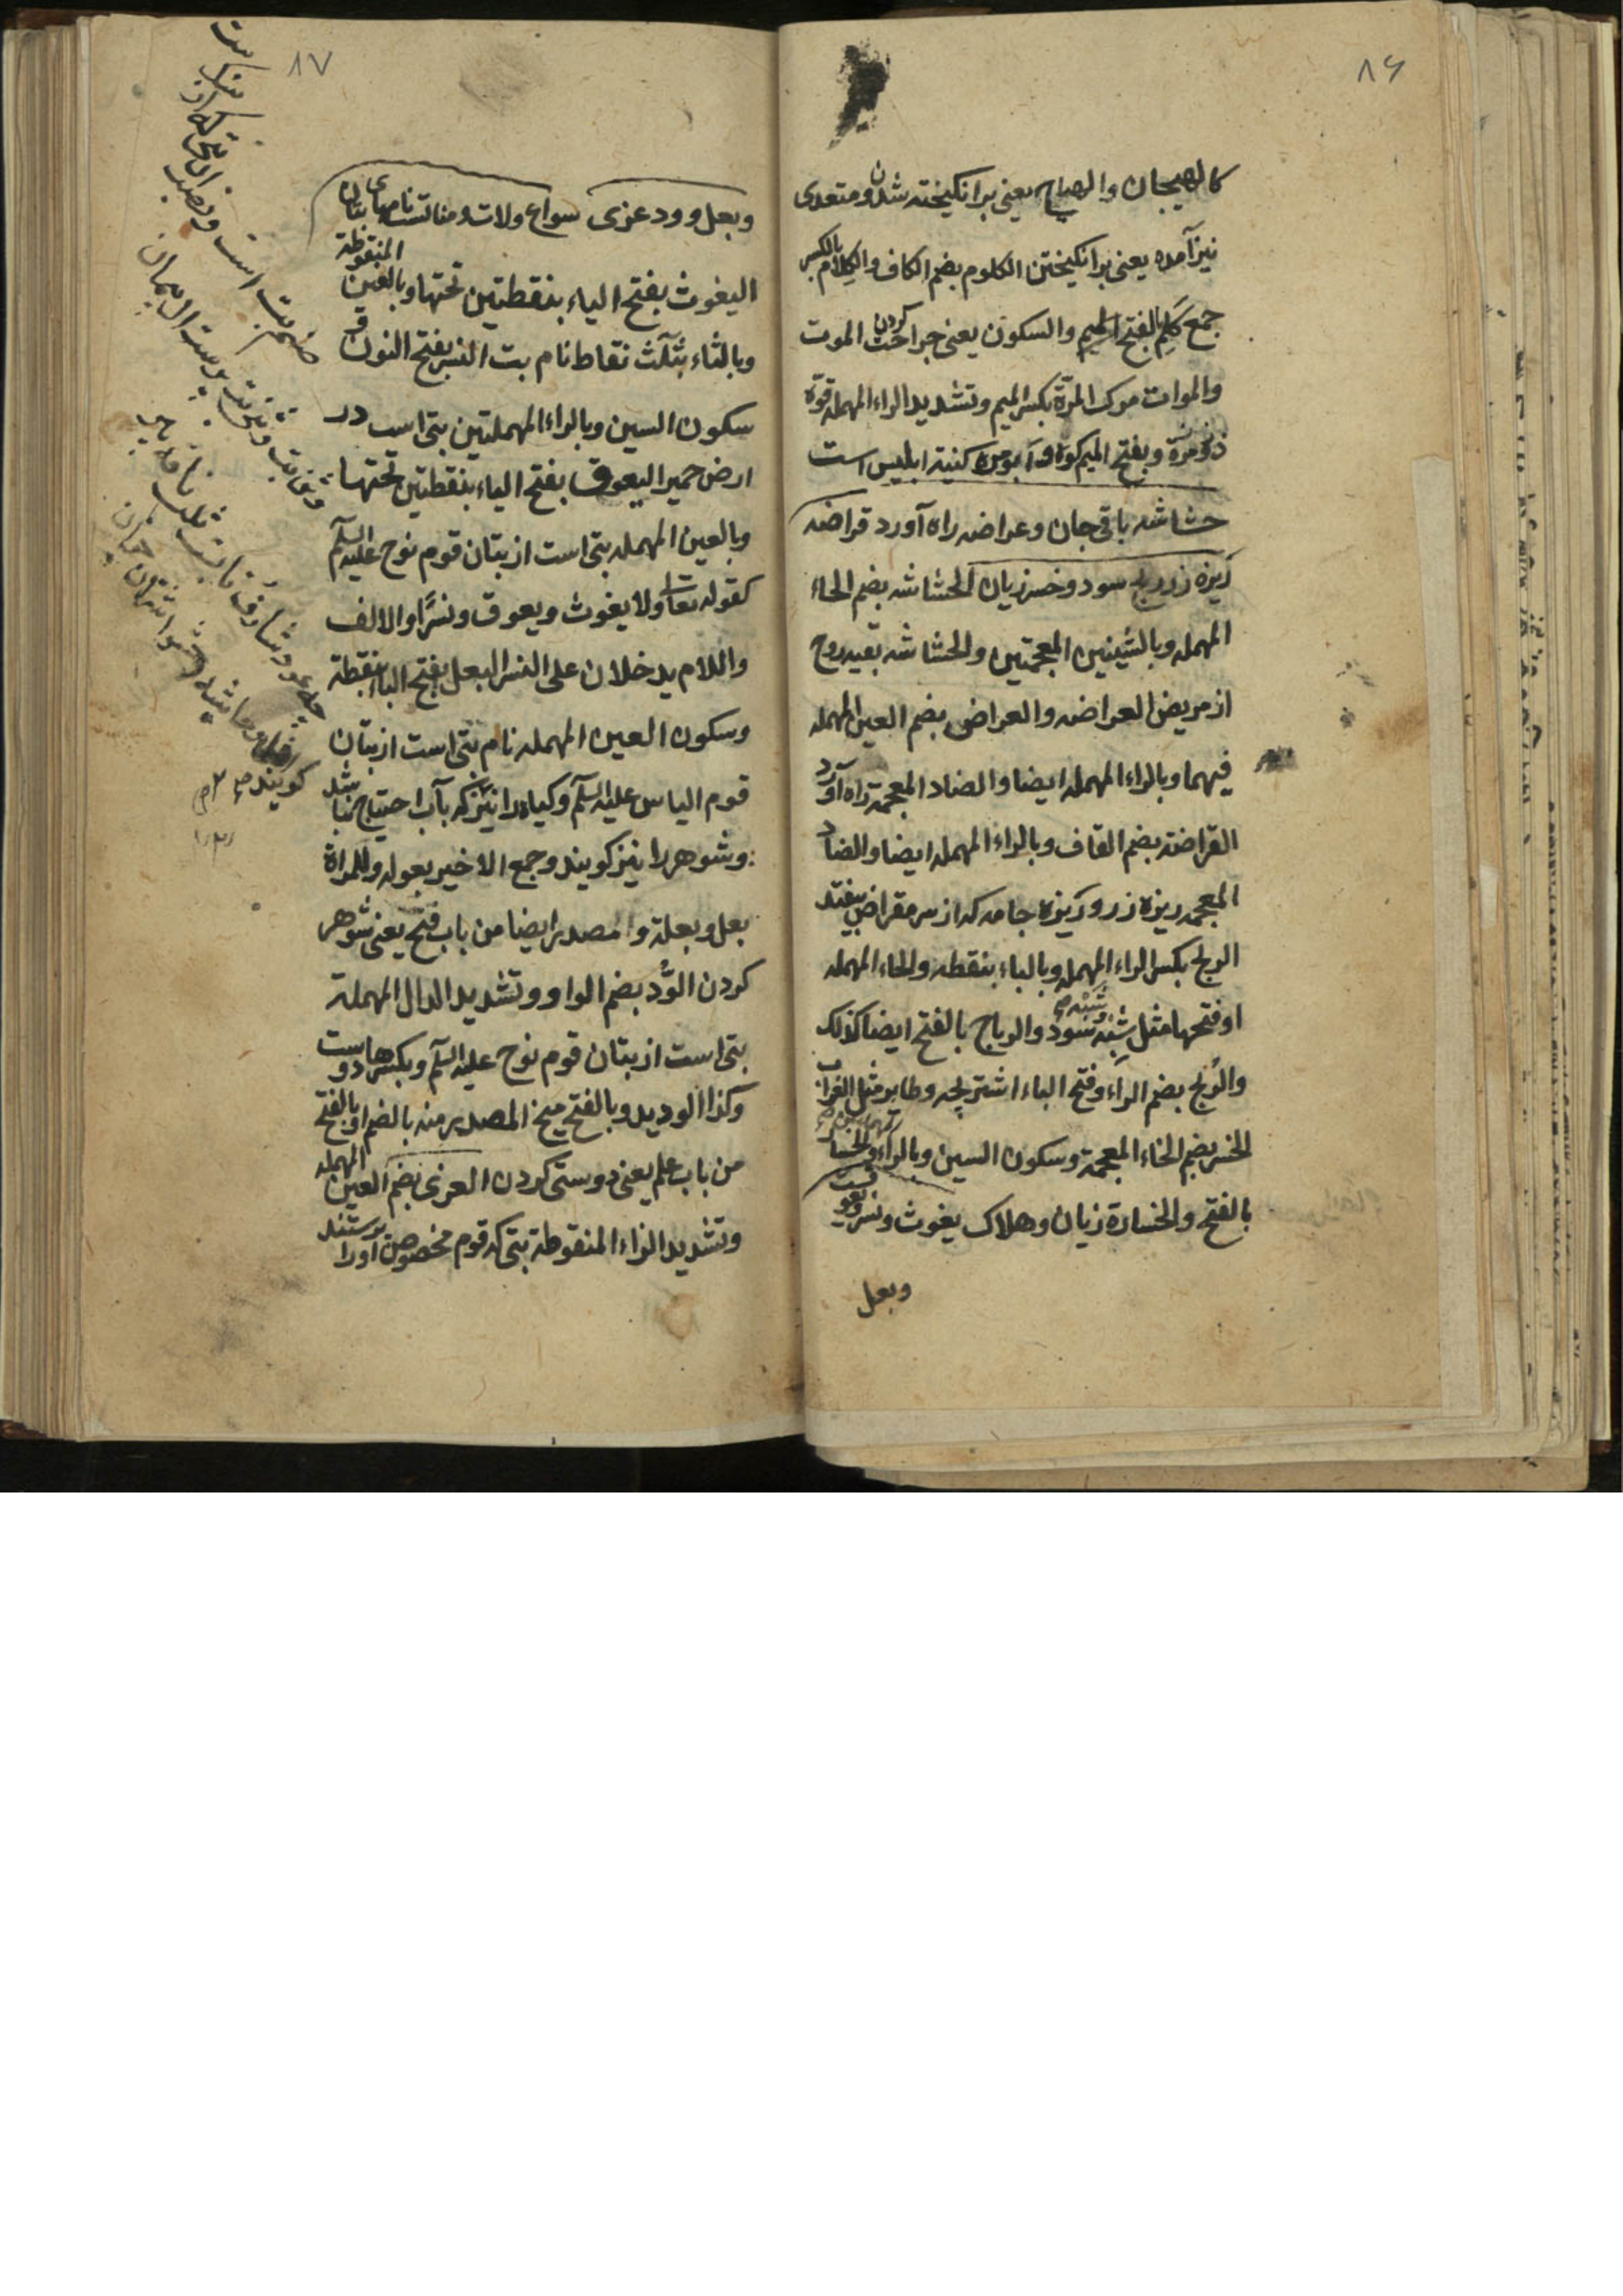 ۸۶
کالهیجان والهیاج یعنی برانکیخته شدن ومتعدی
نیز آمده یعنی برانکیختن الکلوم بضم الکاف والکلام بالکسر
جمع کلم بالفتح المیم والسکون یعنی جراحت کردن الموت
والموات مرک المرّة بکسر المیم وتشدید الراء المهمله قوّة
ذومرّة وبفتح المیم وابومره کنیة ابلیس است
حشاشه باقی جان وعراضه راه آورد قراضه
ریزه زر ربح سود وخسر زیان الحشاشه بضم الحاء
المهمله وبالشینین المعجمتین والحشاشه بقیه روح
از مریض العراضه والعراض بضم العین المهمله
فیهما وبالراء المهمله ایضا والضاد المعجمة راه آورد
القراضة بضم القاف وبالراء المهمله ایضا والضاد
المعجمه ریزه زر وریزه جامه که از سر مقراض بیفتد
الربح بکسر الراء المهمله وبالباء بنقطه والحاء المهمله
او فتحها مثل شبه سود والرباح بالفتح ایضا کذلک
والرُبح بضم الراء وفتح الباء اشتر بچه وطایر مثل الغراب
الخسر بضم الخاء المعجمة وسکون السین وبالراء والخسار
بالفتح والخسارة زیان وهلاک یغوث ونسر ویعوق
وبعل
۸۷
وبعل وود عزی سواع ولات ومنات نامهای بتان
الیغوث بفتح الیاء بنقطتین تحتها وبالغین المنقوطة
وبالثاء بثلث نقاط نام بت النسر بفتح النون و
سکون السین وبالراء المهملتین بتی است در
ارض حمیر الیعوق بفتح الیاء بنقطتین تحتها
وبالعین المهمله بتی است از بتان قوم نوح علیه السلم
کقوله تعالی ولا یغوث ویعوق ونسرًا والالف
واللام یدخلان علی النسر البعل بفتح الباء بنقطة
وسکون العین المهمله نام بتی است از بتان
قوم الیاس علیه السلم وکیاه را نیز که بآب احتیاج نباشد
وشوهر را نیز کویند وجمع الاخیر بعوله وللمراة
بعل وبعلة والمصدر ایضا من باب فتح یعنی شوهر
کردن الوُّد بضم الواو وتشدید الدال المهملة
بتی است از بتان قوم نوح علیه السلم وبکسرها دوست
وکذا الودید وبالفتح میخ المصدر منه بالضم او بالفتح
من باب علم یعنی دوستی کردن العزی بضم العین المهمله
وتشدید الزاء المنقوطة بتی که قوم مخصوص اورا پرستند
صنم بت است
کویند